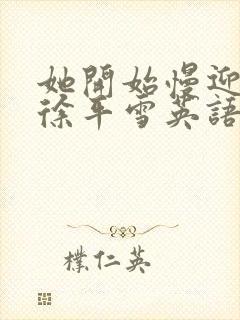 她開始慢迎
徐平雪英語
樸仁英